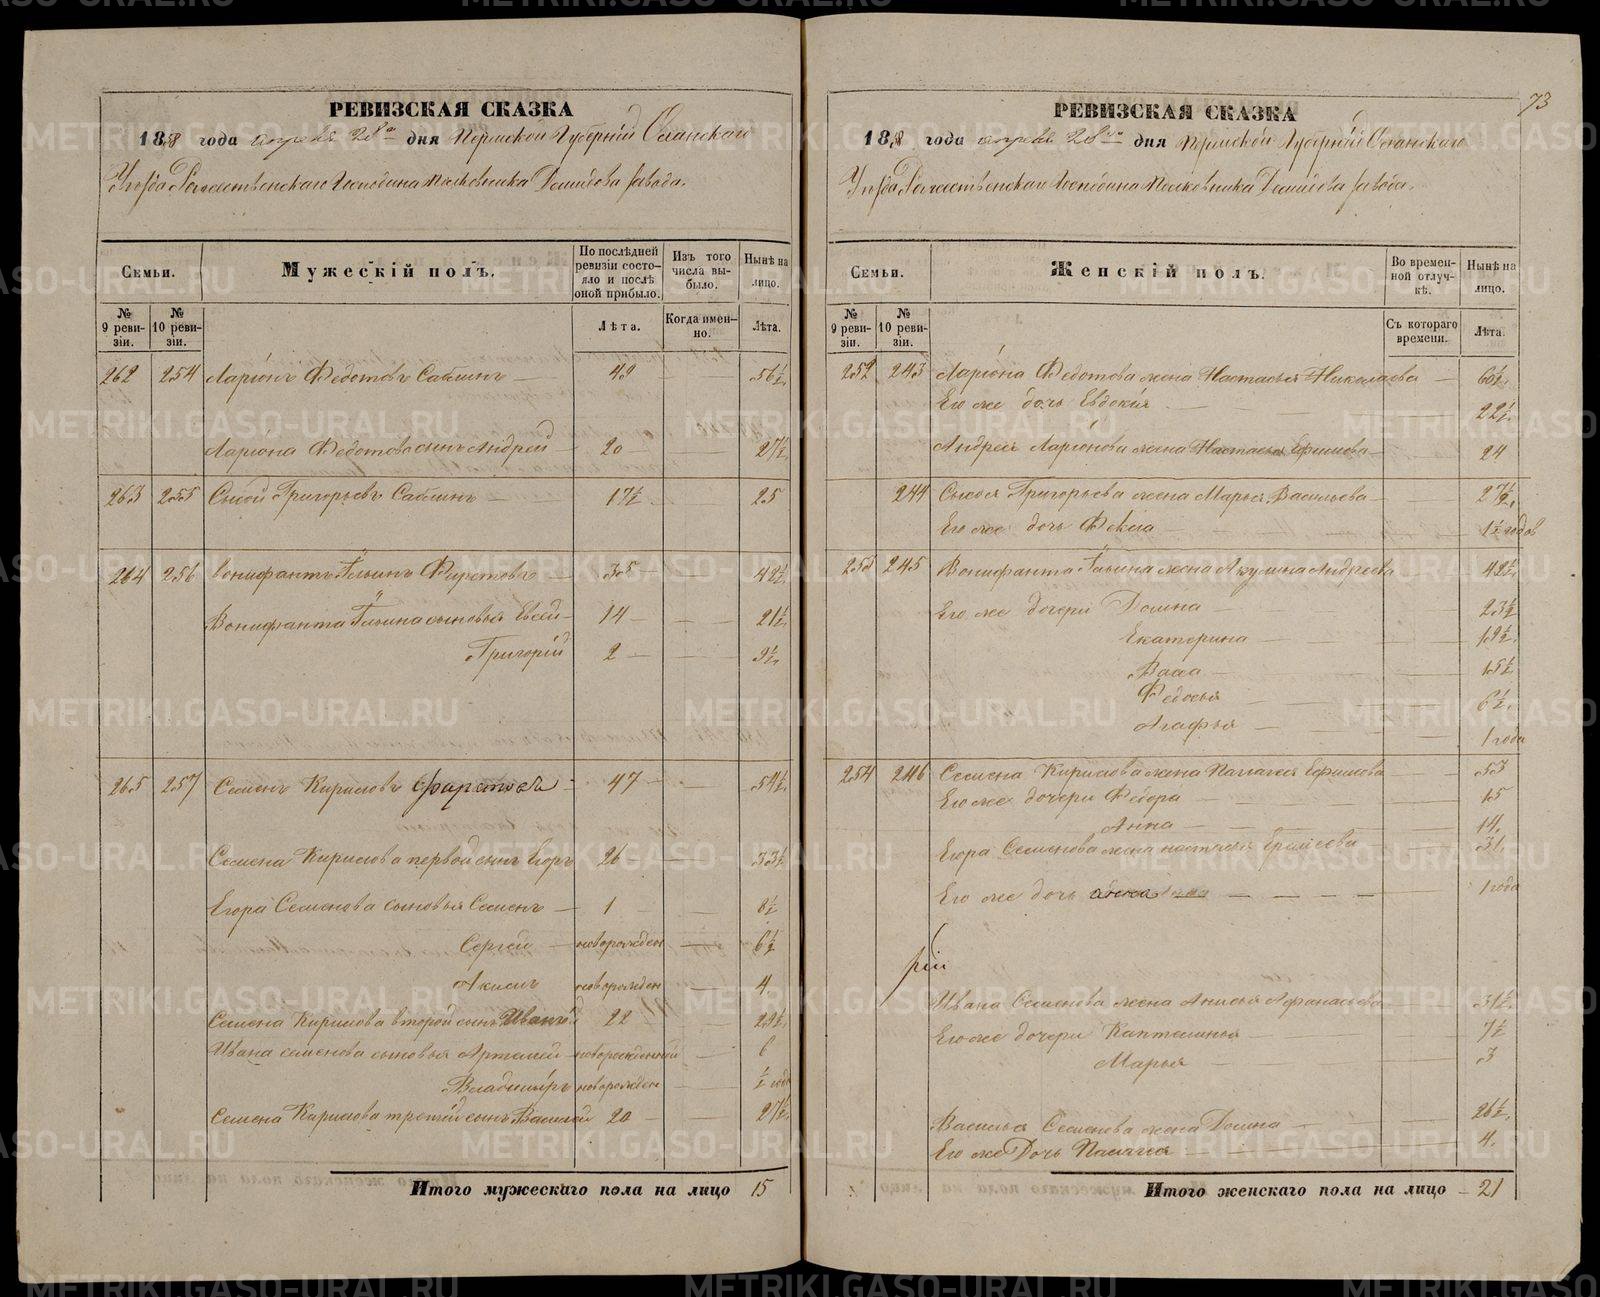 РЕВИЗСКАЯ СКАЗКА
1858 года апреля 28го дня Пермской Губернiи Оханскаго
Уезда Рождественскаго Господина Полковника Демидова завода.
Семьи.
Мужескiй полъ.
По послѣдней ревизiи состояло и послѣ оной прибыло.
Изъ того числа выбыло.
Нынѣ на лицо.
№ 9 ревизiи.
№ 10 ревизiи.
Лѣта.
Когда именно.
Лѣта.
262 254 Ларiонъ Федотовъ Саблинъ — 49 56½
Ларiона Федотова сынъ Андрей — 20 27½
263 255 Сысой Григорьевъ Саблинъ — 17½ 25
264 256 Вонифантъ Ильинъ Фирстовъ — 35 42½
Вонифанта Ильина сыновья Евсей — 14 21½
Григорiй 2 9½
265 257 Семенъ Кириловъ Фирстовъ 47 54½
Семена Кирилова первой сынъ Егоръ 26 33½
Егора Семенова сыновья Семенъ — 1 8½
Сергей — новорожден 6½
Акимъ новорожден 4
Семена Кирилова второй сынъ Иванъ 22 29½
Ивана семенова сыновья Артемей новорожденный 6
Владимiръ новорожден ½ года
Семена Кирилова третiй сынъ Василей 20 27½
Итого мужескаго пола на лицо 15
73
РЕВИЗСКАЯ СКАЗКА
1858 года апреля 28го дня Пермской Губернiи Оханскаго
Уезда Рождественскаго Господина Полковника Демидова завода.
Семьи.
Женскiй полъ.
Во временной отлучкѣ.
Нынѣ на лицо.
№ 9 ревизiи.
№ 10 ревизiи.
Съ котораго времени.
Лѣта.
252 243 Ларiона Федотова жена Настасья Николаева — 60½
Его же дочь Евдокiя 22½
Андрея Ларiонова жена Настасья Ефимова — 24
244 Сысоя Григорьева жена Марья Васильева — 27½
Его же дочь Фекла — 1½ годов
253 245 Вонифанта Ильина жена Акулина Андреева 42½
Его же дочери Домна 23½
Екатерина 19½
Васса 15½
Федосья 6½
Агафья 1 года
254 246 Семена Кирилова жена Палагея Ефимова 53
Его же дочери Федора — 15
Анна — 14
Егора Семенова жена настасья 31
Его же дочь Анна 1 года
Ивана Семенова жена Анисья Афанасьева 31½
Его же дочери Капталина 7½
Марья 3
Василья Семенова жена Домна 26½
Его же Дочь Палагея 4
Итого женскаго пола на лицо — 21
METRIKI.GASO-URAL.RU